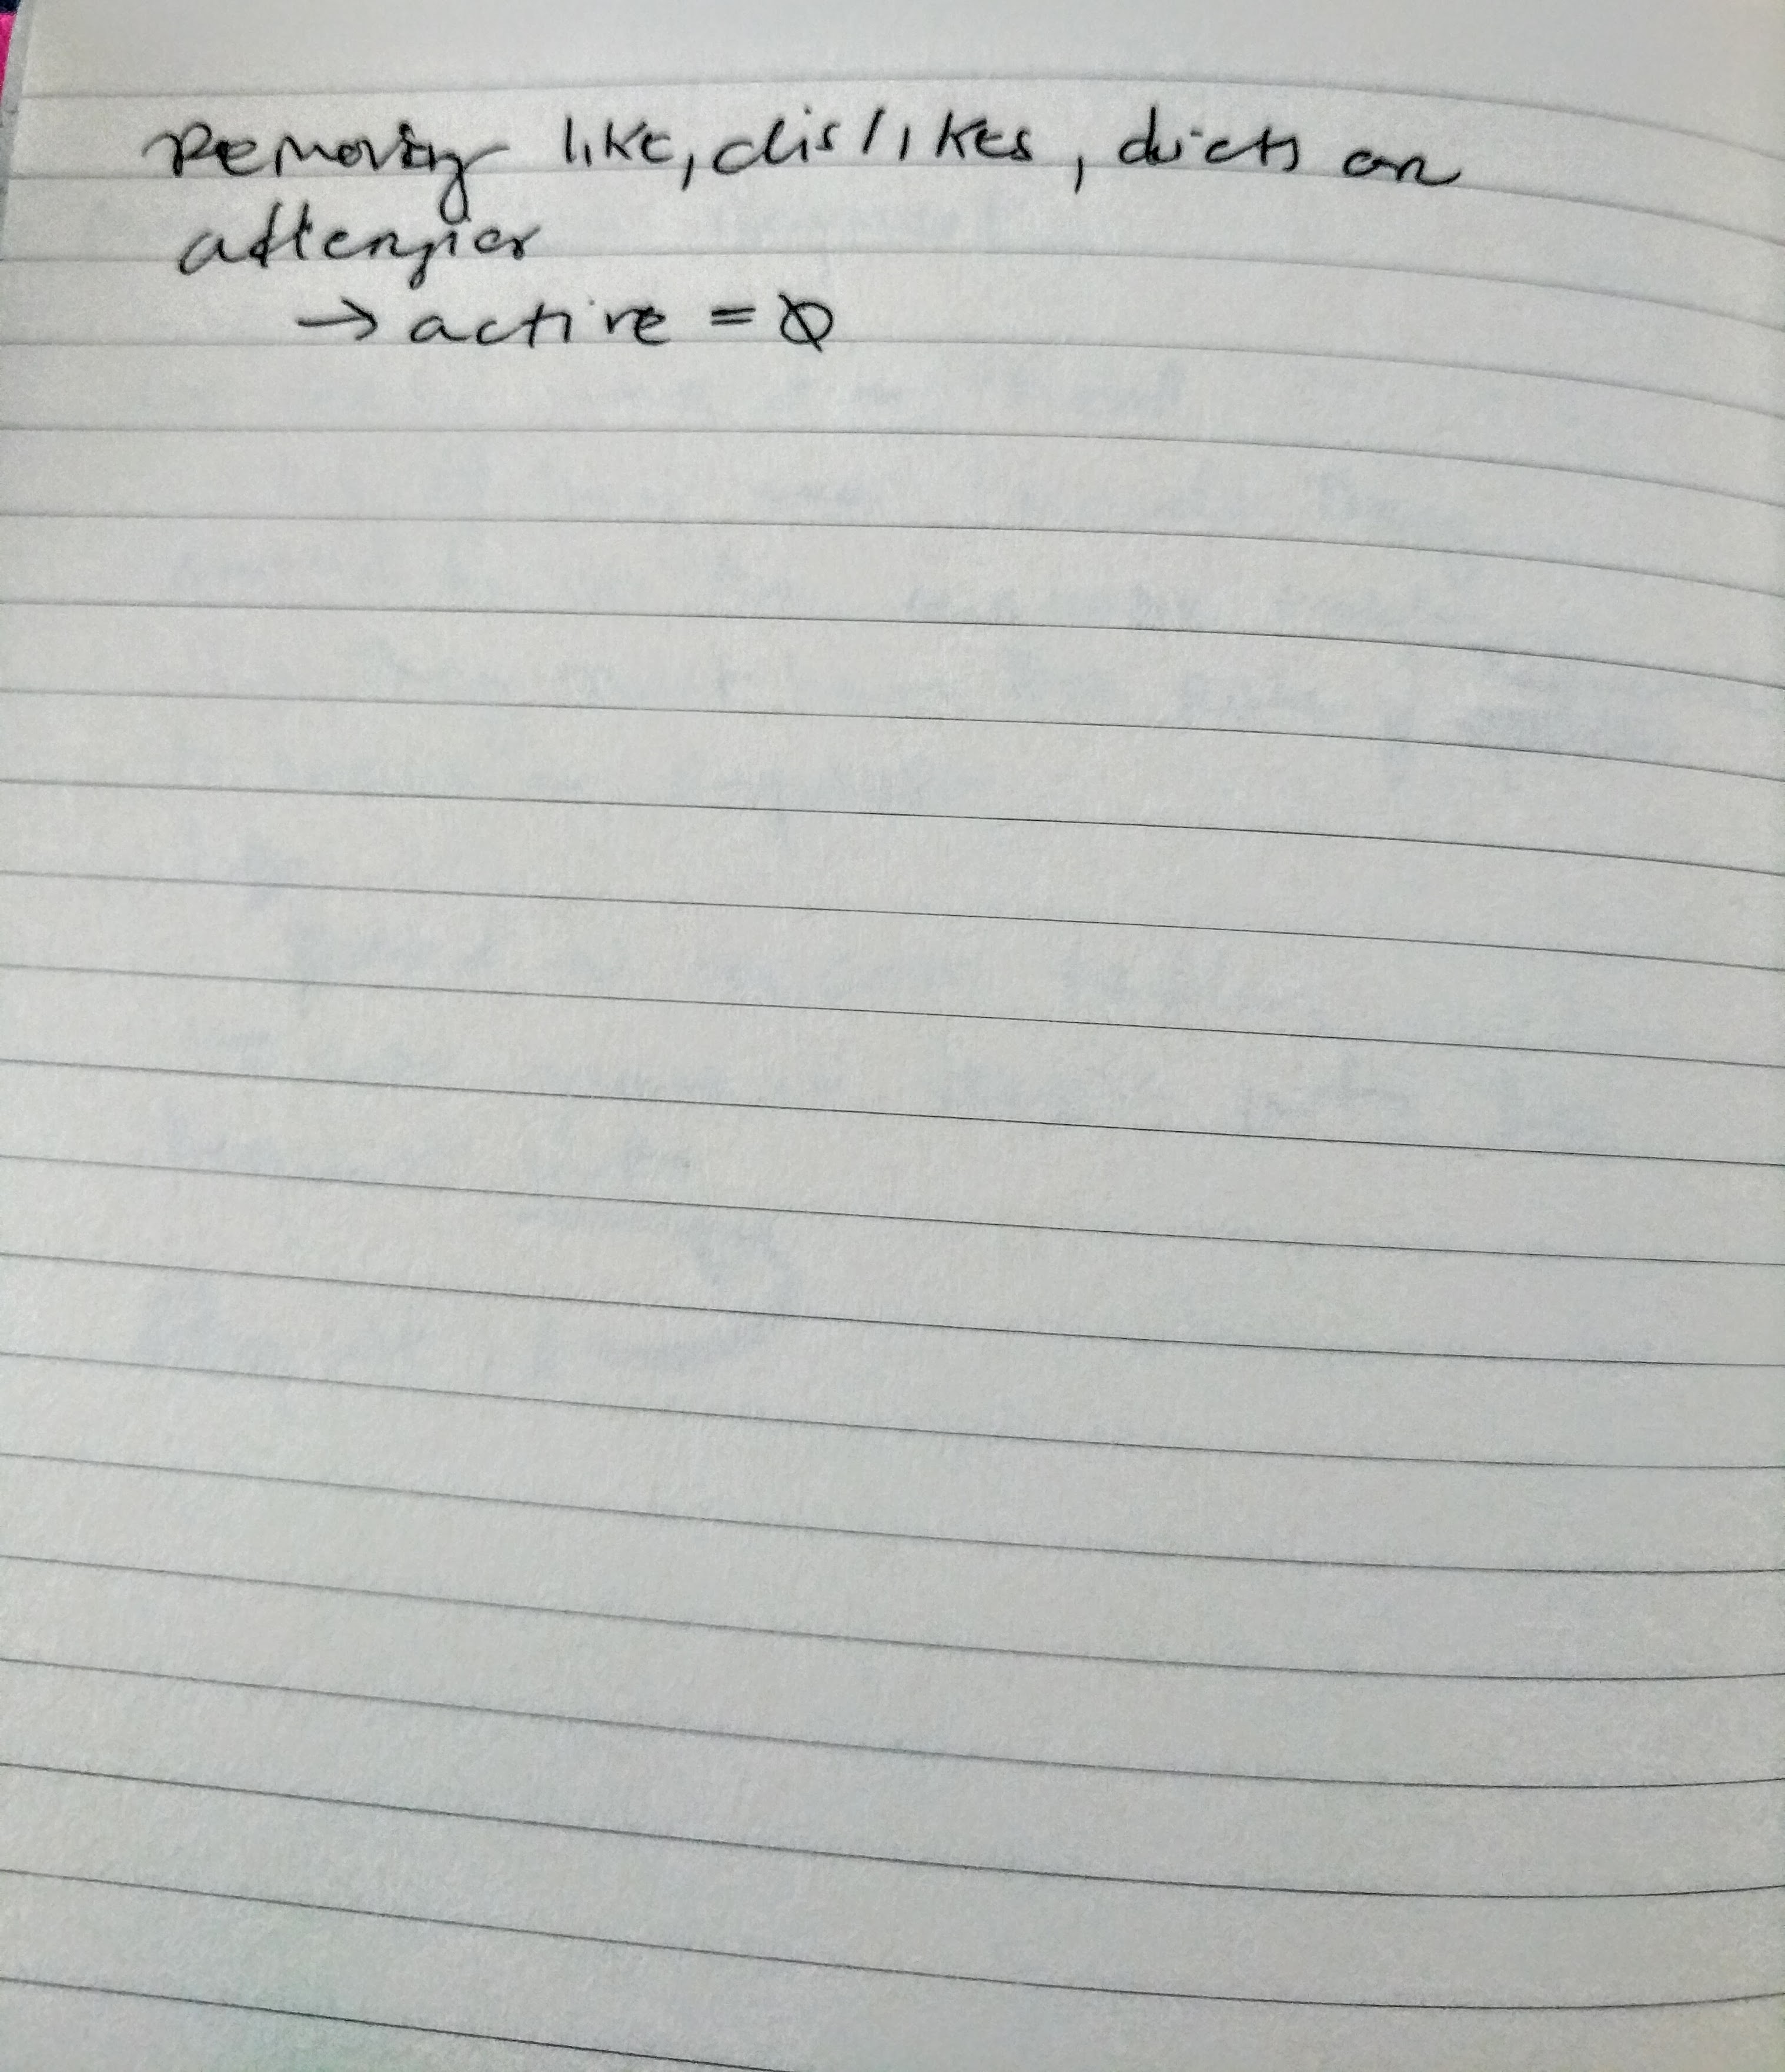 Removing like, dislikes, diets on
allergies
→ active = 0